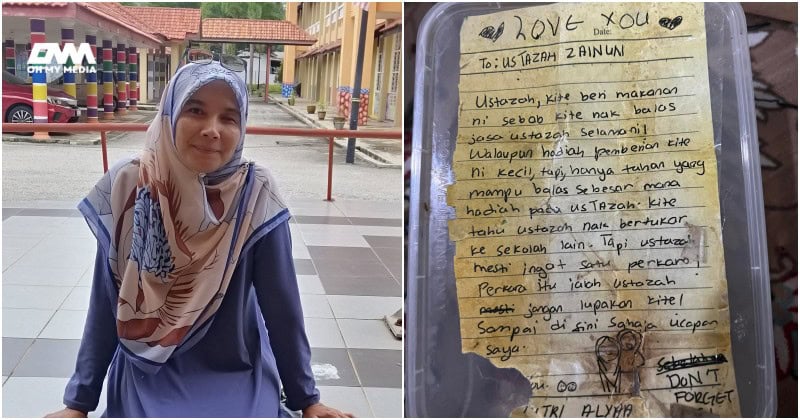 OMM
OH MY MEDIA
LOVE YOU
Date:
To: USTAZAH ZAINUN
Ustazah, kite beri makanan
ni sebab kite nak balas
jasa ustazah selama ni!
Walaupun hadiah pemberian kite
ni kecil, tapi, hanya tuhan yang
mampu balas sebesar mana
hadiah pada usTAzah. kite
tahu ustazah nak bertukar
ke sekolah lain. Tapi ustaza
mesti ingat satu perkara!
Perkara itu ialah ustazah
mesti jangan lupakan kite!
Sampai di sini sahaja ucapan
saya.
DON'T
FORGET
TRI ALYAA